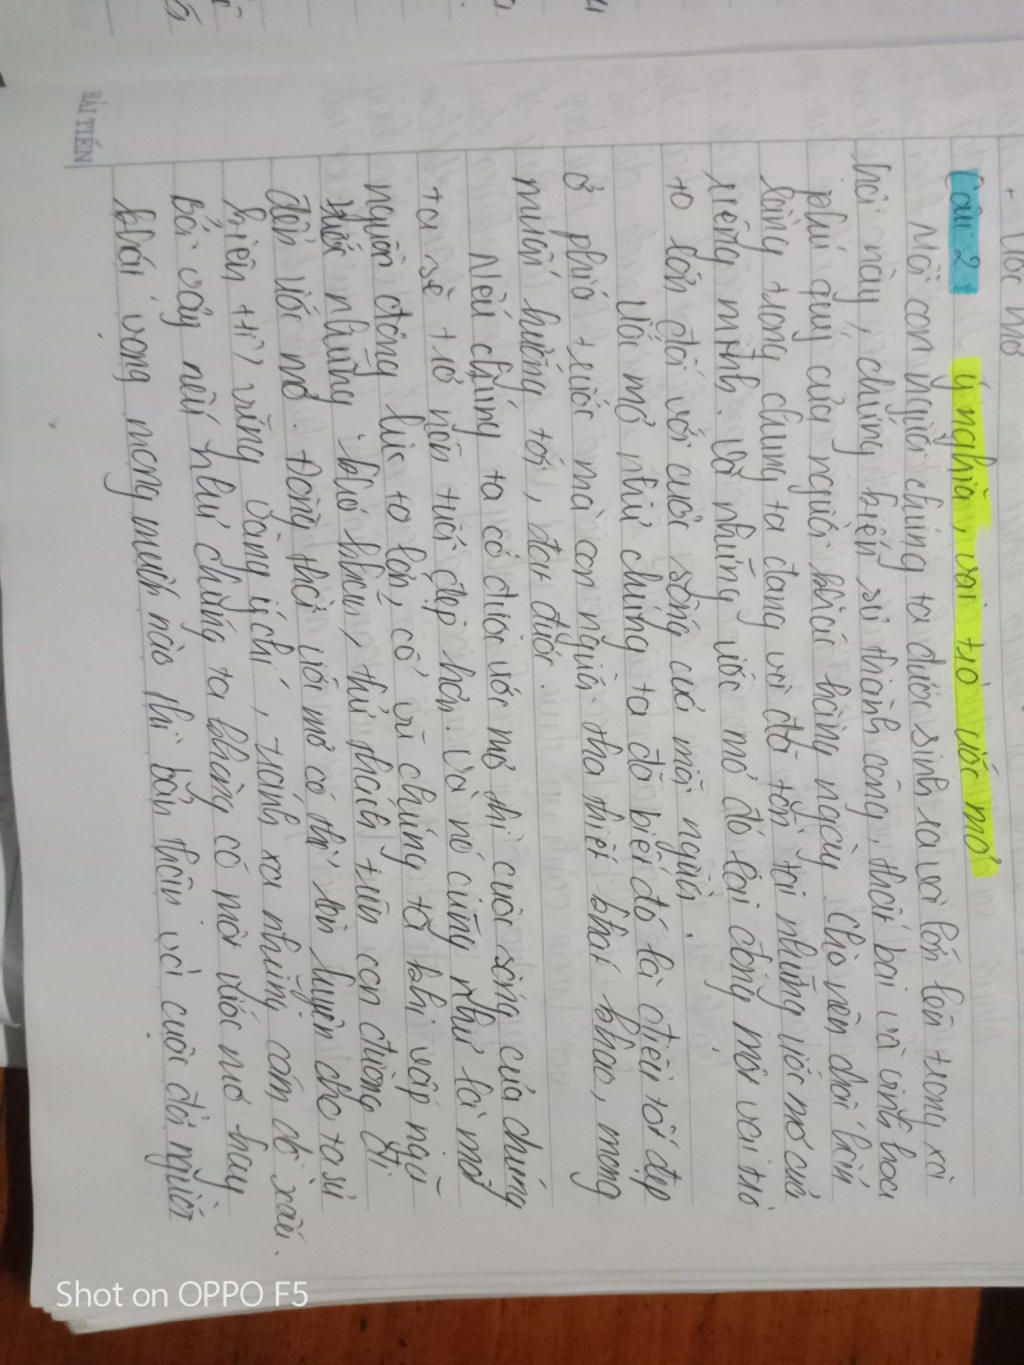 Ước mơ
Câu 2: ý nghĩa, vai trò ước mơ
Mỗi con người chúng ta được sinh ra và lớn lên trong xã
hội này, chứng kiến sự thành công, thất bại và vinh hoa
phú quý của người khác hàng ngày. Cho nên chắc hẳn
lòng trong chúng ta đang và đã tồn tại những ước mơ của
riêng mình. Và những ước mơ đó lại đóng một vai trò
to lớn đối với cuộc sống của mỗi người.
Ước mơ như chúng ta đã biết đó là điều tốt đẹp
ở phía trước mà con người tha thiết khát khao, mong
muốn hướng tới, đạt được.
Nếu chúng ta có được ước mơ thì cuộc sống của chúng
ta sẽ trở nên tươi đẹp hơn. Và nó cũng như là một
nguồn động lực to lớn, cổ vũ chúng ta khi vấp ngã
trước những khó khăn, thử thách trên con đường đi
đến ước mơ. Đồng thời ước mơ có thể rèn luyện cho ta sự
kiên trì, vững vàng ý chí, tránh xa những cám dỗ xấu.
Bởi vậy nếu như chúng ta không có một ước mơ hay
khát vọng mong muốn nào thì bản thân và cuộc đời người
HẢI TIẾN
Shot on OPPO F5